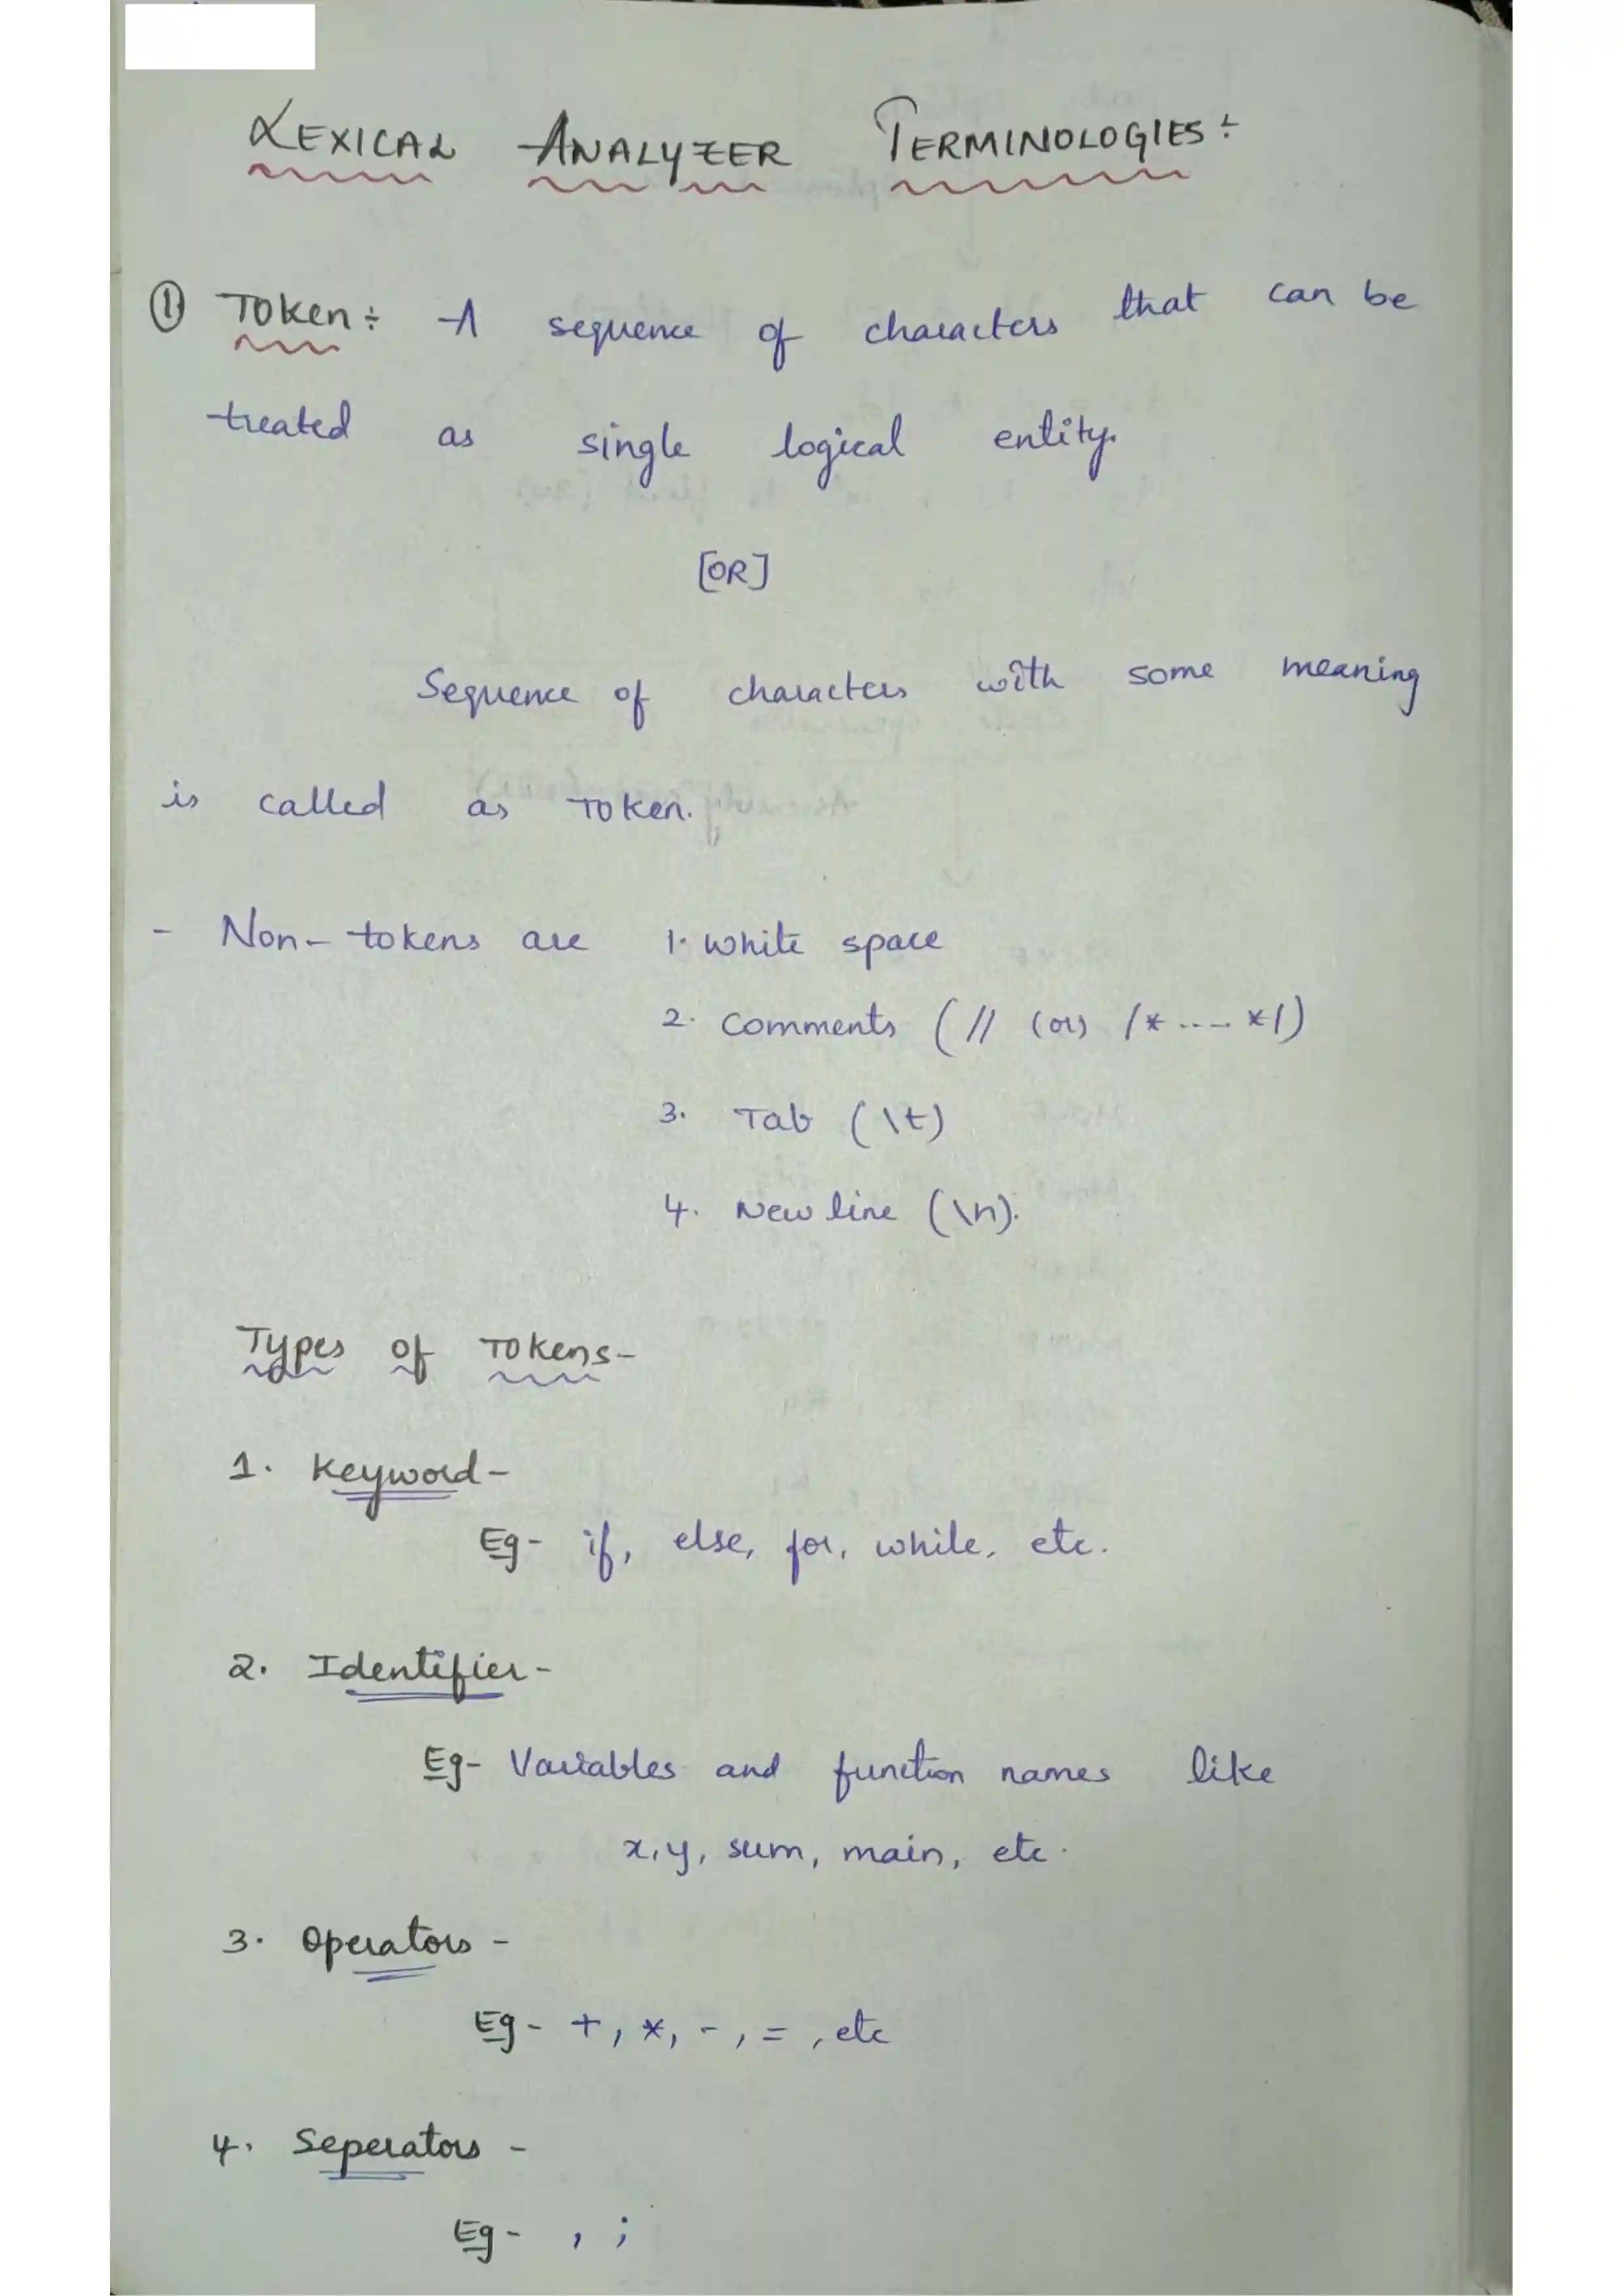 LEXICAL ANALYZER TERMINOLOGIES:
① Token: A sequence of characters that can be
treated as single logical entity.
[OR]
Sequence of characters with some meaning
is called as Token.
- Non-tokens are 1. White space
2. Comments ( // (or) /* .... */)
3. Tab (\t)
4. New line (\n).
Types of Tokens-
1. Keyword-
Eg- if, else, for, while, etc.
2. Identifier-
Eg- Variables and function names like
x, y, sum, main, etc.
3. Operators -
Eg- +, *, -, =, etc
4. Seperators -
Eg- , ;